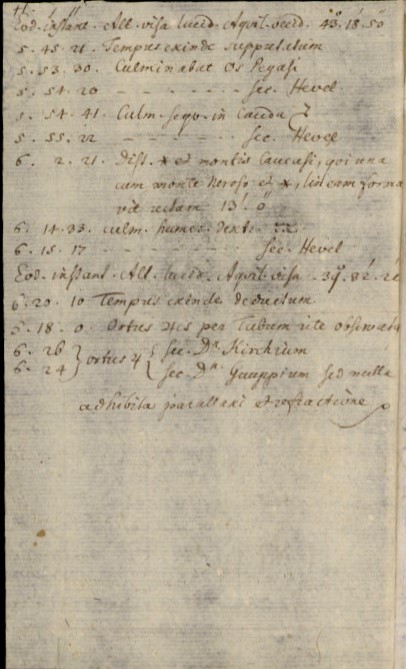 Eod. instant. Alt. visa lucid. Aquil. 43. 18. 50
5. 45. 21. Tempus exinde supputatum
5. 53. 30. Culminabat Os Pegasi
5. 54. 20 - - - - - - - sec. Hevel.
5. 54. 41. Culm. sequ. in Cauda ♑
5. 55. 22 - - - - - - - sec. Hevel
6. 2. 21. Dist. ☓ et montis Caucasi, qui una
cum monte Neroso et ☓, lineam forma
vit rectam 13'. 0"
6. 14. 33. Culm. humer. dext. ♒
6. 15. 17 - - - - - - - sec. Hevel
Eod. instant. Alt. lucid. Aquil. visa 39. 32.
6. 20. 10 Tempus exinde deductum
6. 18. 0. Ortus ♃is per Tubum rite observatus
6. 26 } ortus ♃ { sec. Dn. Kirchium
6. 24 sec. Dn. Gauppium sed nulla
adhibita parallaxi et refractione